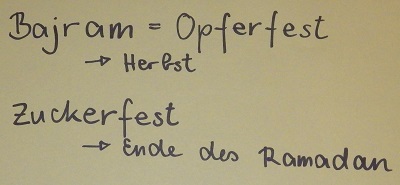 Bajram = Opferfest
→ Herbst
Zuckerfest
→ Ende des Ramadan